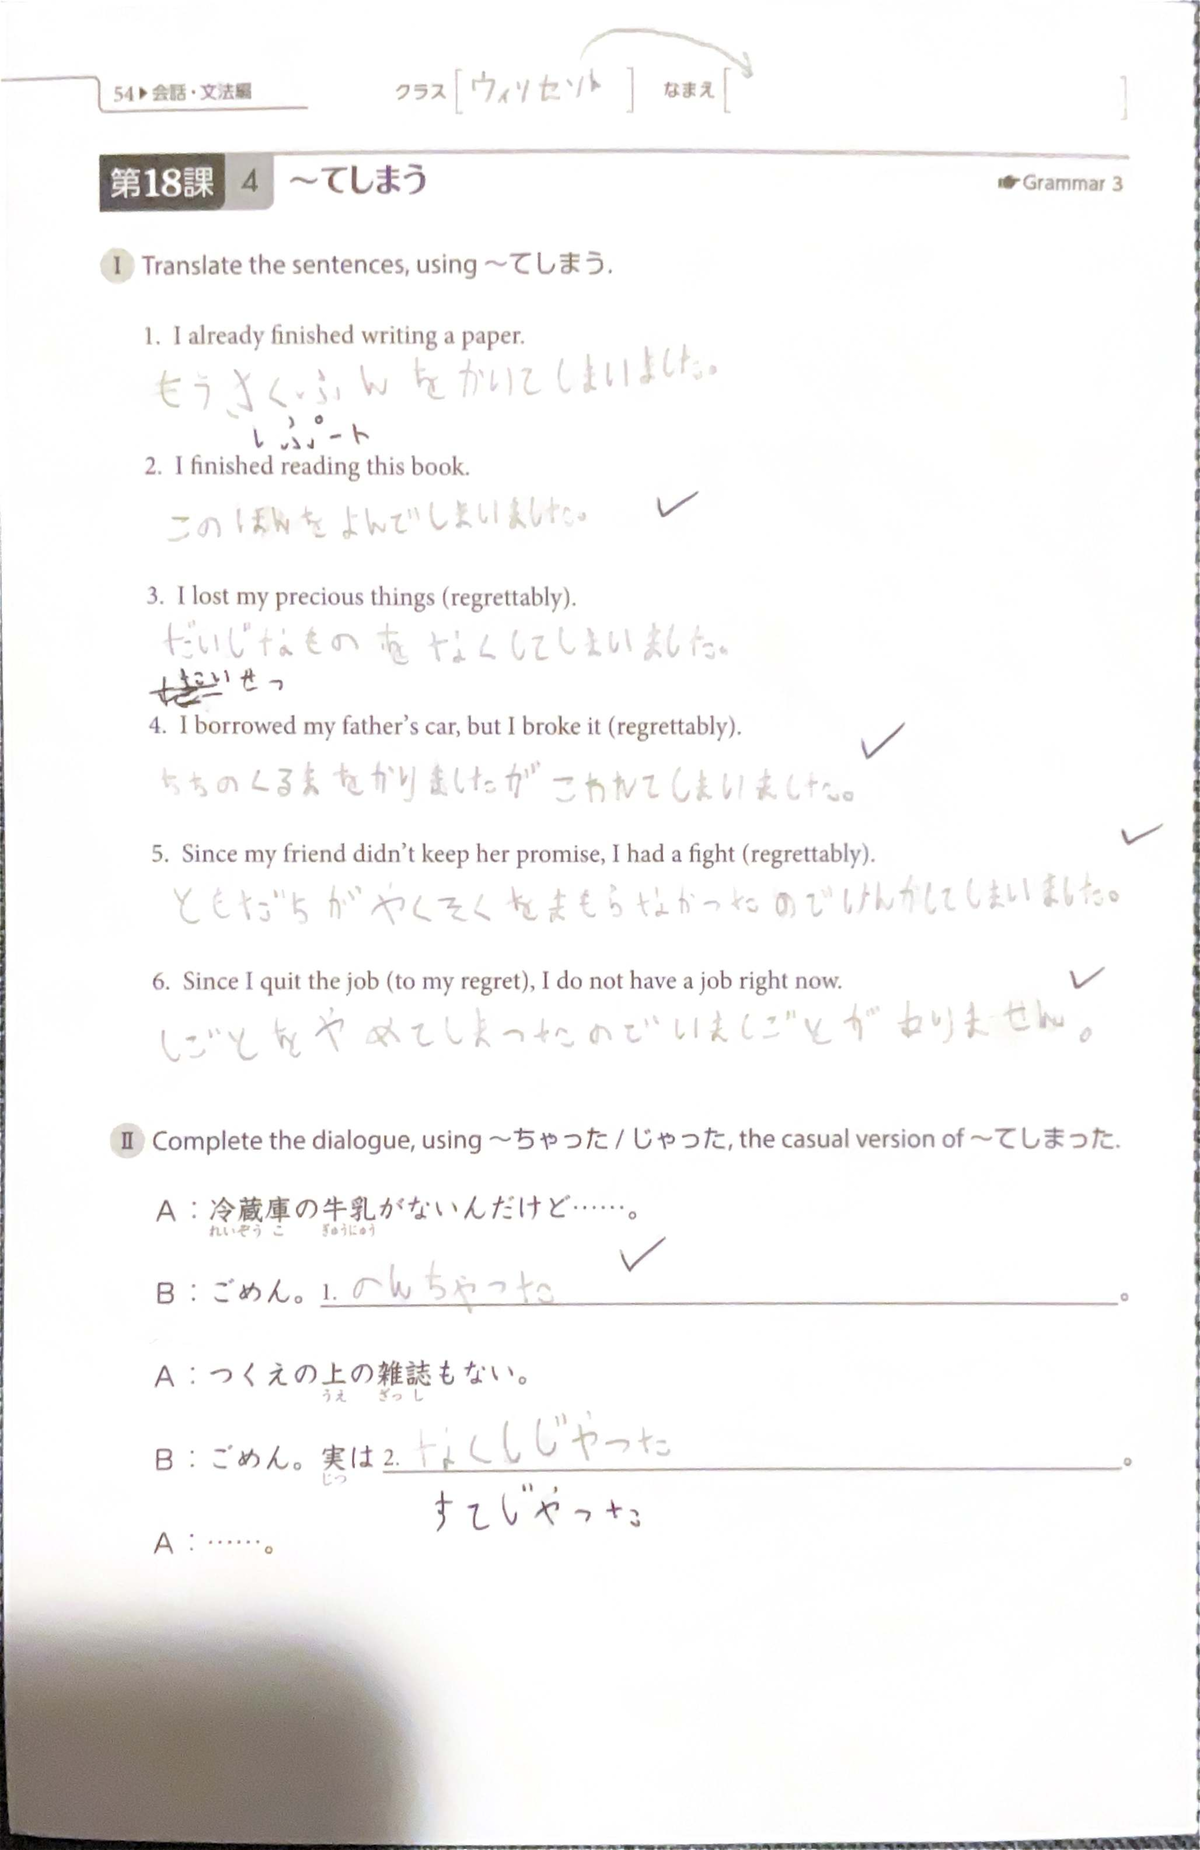 54▶会話・文法編 クラス [ウィソセソト] なまえ [ ]
第18課 4 〜てしまう Grammar 3
I Translate the sentences, using 〜てしまう.
1. I already finished writing a paper.
もうさくぶんをかいてしまいました。
レポート
2. I finished reading this book.
このほんをよんでしまいました。
3. I lost my precious things (regrettably).
だいじなものをなくしてしまいました。
いせつ
4. I borrowed my father's car, but I broke it (regrettably).
ちちのくるまをかりましたがこわれてしまいました。
5. Since my friend didn't keep her promise, I had a fight (regrettably).
ともだちがやくそくをまもらなかったのでけんかしてしまいました。
6. Since I quit the job (to my regret), I do not have a job right now.
しごとをやめてしまったのでいましごとがありません。
II Complete the dialogue, using 〜ちゃった / じゃった, the casual version of 〜てしまった.
A:冷蔵庫の牛乳がないんだけど……。
れいぞうこ ぎゅうにゅう
B:ごめん。1. のんちゃった。
A:つくえの上の雑誌もない。
うえ ざっし
B:ごめん。実は 2. なくしじゃった。
じつ
すてじゃった
A:……。